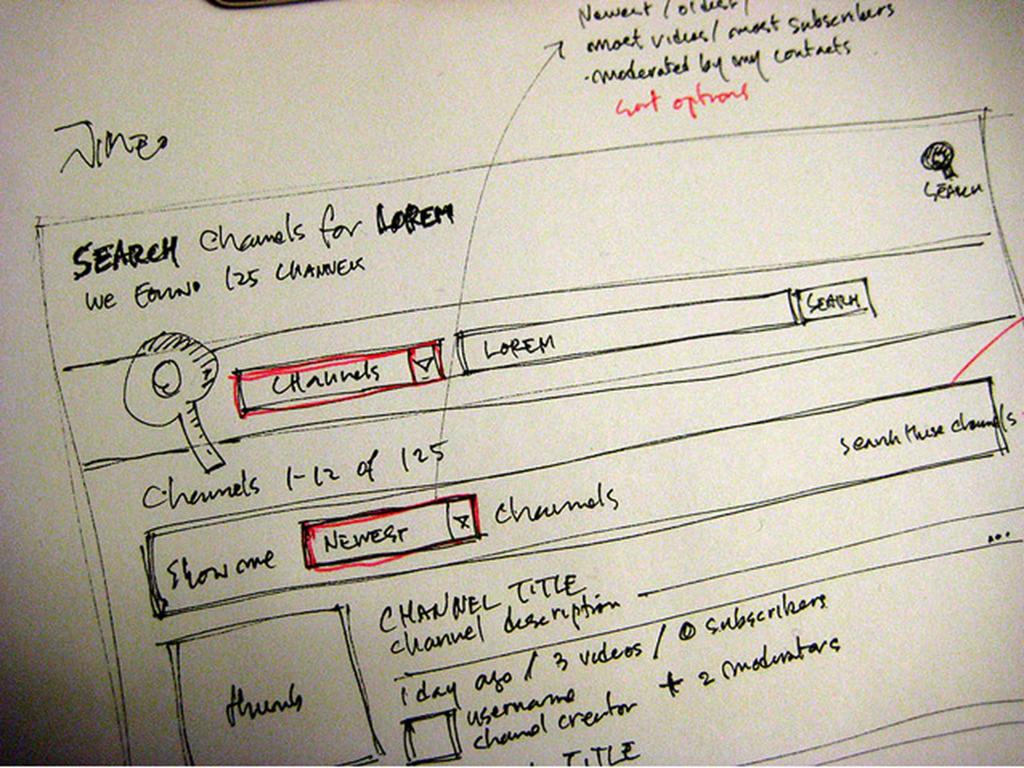 Newest / oldest /
most videos / most subscribers
· moderated by my contacts
sort options
Vimeo
SEARCH
SEARCH Channels for LOREM
WE FOUND 125 CHANNELS
Channels LOREM SEARCH
Channels 1-12 of 125
search these channels
Show me NEWEST Channels
...
CHANNEL TITLE
channel description
1 day ago / 3 videos / 0 subscribers
thumb
username + 2 moderators
channel creator
TITLE